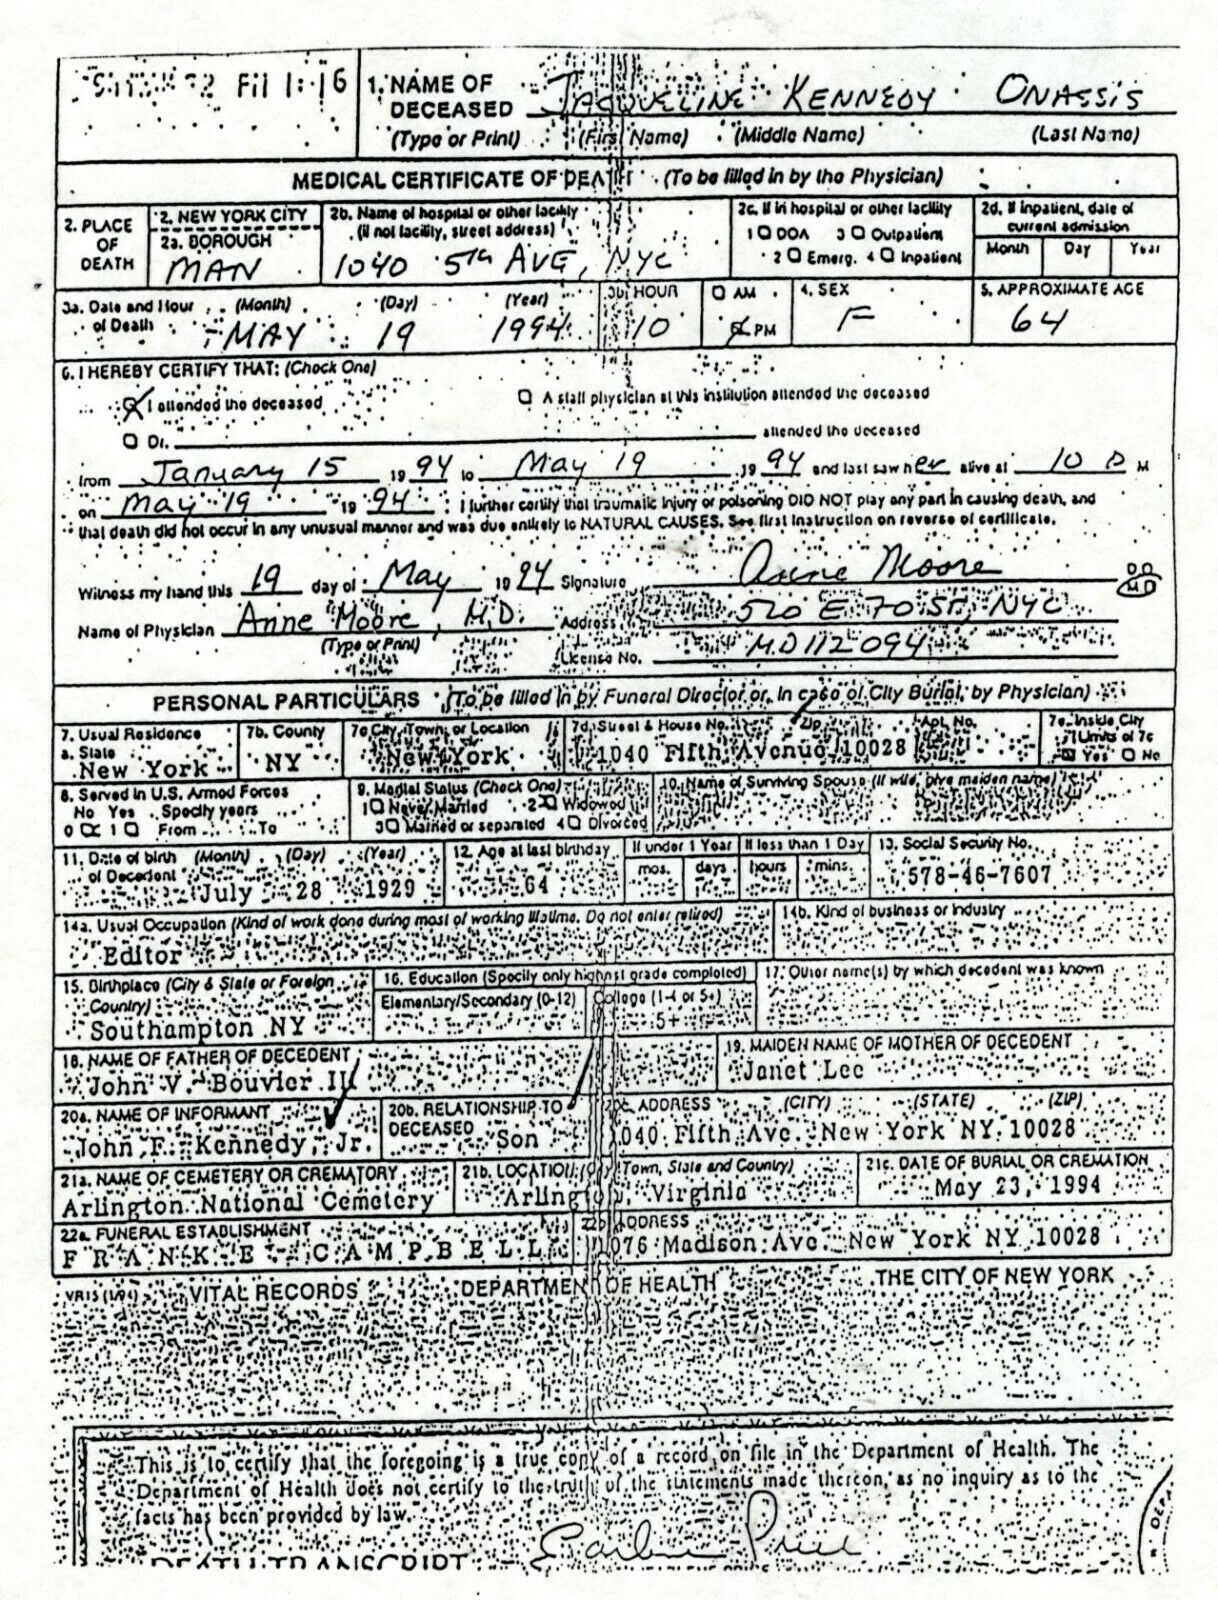 1. NAME OF DECEASED JACQUELINE KENNEDY ONASSIS
(Type or Print) (First Name) (Middle Name) (Last Name)
MEDICAL CERTIFICATE OF DEATH (To be filled in by the Physician)
2. PLACE OF DEATH
2. NEW YORK CITY
2a. BOROUGH
MAN
2b. Name of hospital or other facility
(if not facility, street address)
1040 5th AVE, NYC
2c. If in hospital or other facility
1 DOA 3 Outpatient
2 Emerg. 4 Inpatient
2d. If inpatient, date of current admission
Month Day Year
3a. Date and Hour of Death (Month) (Day) (Year)
MAY 19 1994
3b. HOUR
10 AM
PM
4. SEX
F
5. APPROXIMATE AGE
64
6. I HEREBY CERTIFY THAT: (Check One)
I attended the deceased A staff physician at this institution attended the deceased
Dr. attended the deceased
from January 15 19 94 to May 19 19 94 and last saw her alive at 10 P M
on May 19 19 94. I further certify that traumatic injury or poisoning DID NOT play any part in causing death, and
that death did not occur in any unusual manner and was due entirely to NATURAL CAUSES. See first instruction on reverse of certificate.
Witness my hand this 19 day of May 19 94 Signature Anne Moore DO MD
Name of Physician Anne Moore, M.D. Address 520 E 70 ST, NYC
(Type or Print) License No. MD112094
PERSONAL PARTICULARS (To be filled in by Funeral Director or, in case of City Burial, by Physician)
7. Usual Residence
a. State
New York
7b. County
NY
7c City, Town, or Location
New York
7d. Street & House No. Zip Apt. No.
1040 Fifth Avenue 10028
7e. Inside City Limits of 7c
Yes No
8. Served in U.S. Armed Forces
No Yes Specify years
0 1 From To
9. Marital Status (Check One)
1 Never Married 2 Widowed
3 Married or separated 4 Divorced
10. Name of Surviving Spouse (If wife, give maiden name)
11. Date of birth of Decedent (Month) (Day) (Year)
July 28 1929
12. Age at last birthday
64
If under 1 Year If less than 1 Day
mos. days hours mins.
13. Social Security No.
578-46-7607
14a. Usual Occupation (Kind of work done during most of working lifetime. Do not enter retired)
Editor
14b. Kind of business or industry
15. Birthplace (City & State or Foreign Country)
Southampton NY
16. Education (Specify only highest grade completed)
Elementary/Secondary (0-12) College (1-4 or 5+)
5+
17. Other name(s) by which decedent was known
18. NAME OF FATHER OF DECEDENT
John V. Bouvier III
19. MAIDEN NAME OF MOTHER OF DECEDENT
Janet Lee
20a. NAME OF INFORMANT
John F. Kennedy, Jr.
20b. RELATIONSHIP TO DECEASED
Son
20c. ADDRESS (CITY) (STATE) (ZIP)
1040 Fifth Ave. New York NY 10028
21a. NAME OF CEMETERY OR CREMATORY
Arlington National Cemetery
21b. LOCATION (City, Town, State and Country)
Arlington, Virginia
21c. DATE OF BURIAL OR CREMATION
May 23, 1994
22a. FUNERAL ESTABLISHMENT
FRANK E CAMPBELL
22b ADDRESS
1076 Madison Ave. New York NY 10028
VR15 VITAL RECORDS DEPARTMENT OF HEALTH THE CITY OF NEW YORK
This is to certify that the foregoing is a true copy of a record on file in the Department of Health. The
Department of Health does not certify to the truth of the statements made thereon, as no inquiry as to the
facts has been provided by law.
DEATH TRANSCRIPT